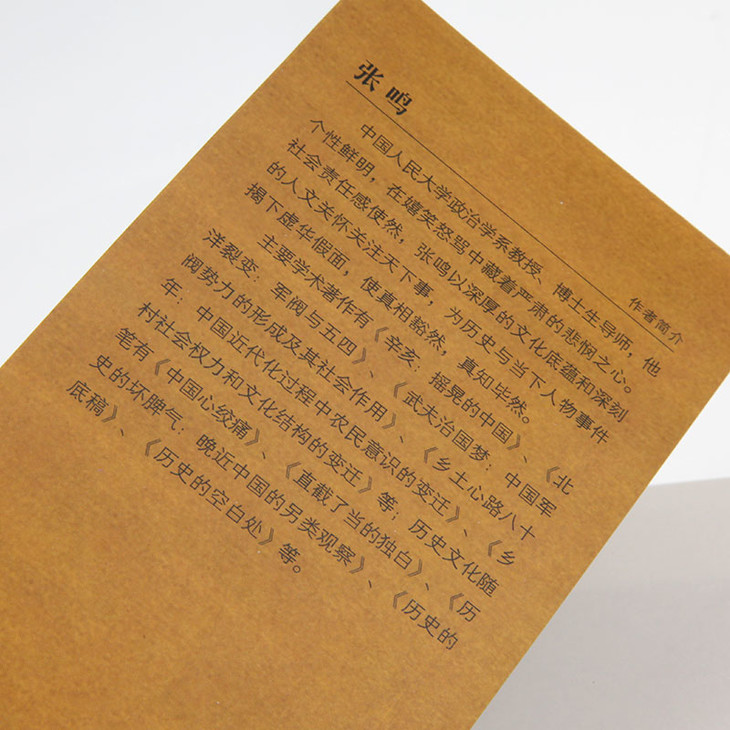 张鸣
作者简介
中国人民大学政治学系教授、博士生导师，他
个性鲜明，在嬉笑怒骂中藏着严肃的悲悯之心。
社会责任感使然，张鸣以深厚的文化底蕴和深刻
的人文关怀关注天下事，为历史与当下人物事件
揭下虚华假面，使真相豁然，真知毕然。
主要学术著作有《辛亥：摇晃的中国》、《北
洋裂变：军阀与五四》、《武夫治国梦：中国军
阀势力的形成及其社会作用》、《乡土心路八十
年：中国近代化过程中农民意识的变迁》、《乡
村社会权力和文化结构的变迁》等；历史文化随
笔有《中国心绞痛》、《直截了当的独白》、《历
史的坏脾气：晚近中国的另类观察》、《历史的
底稿》、《历史的空白处》等。